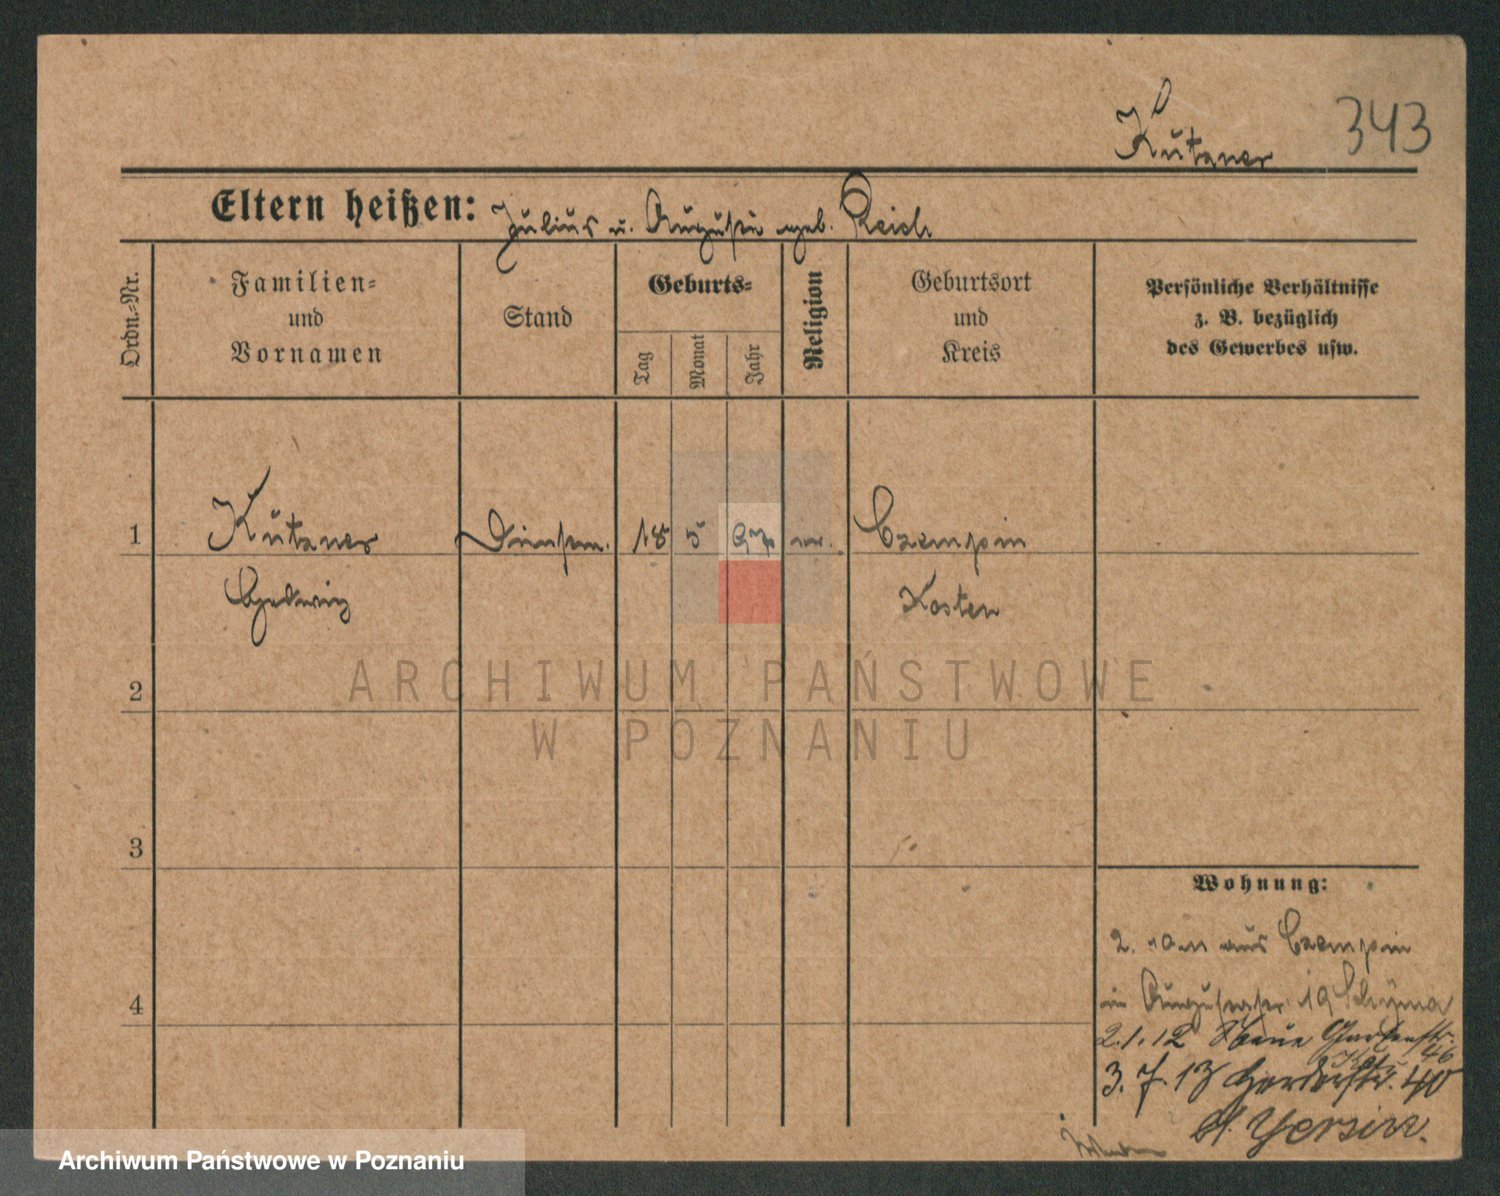 343
Kutzner
Eltern heißen: Julius u. Auguste geb. Reich
Ordn.-Nr.
Familien- und Vornamen
Stand
Geburts-
Tag
Monat
Jahr
Religion
Geburtsort und Kreis
Persönliche Verhältnisse z. B. bezüglich des Gewerbes usw.
1 Kutzner Dienstm. 18 5 97 ev. Czempin
Hedwig Kosten
ARCHIWUM PAŃSTWOWE
W POZNANIU
2
3
4
Wohnung:
2. aus Czempin
in Augustastr. 19
2.1.12 Neue Gartenstr. 46
3. 7. 13 40
Archiwum Państwowe w Poznaniu